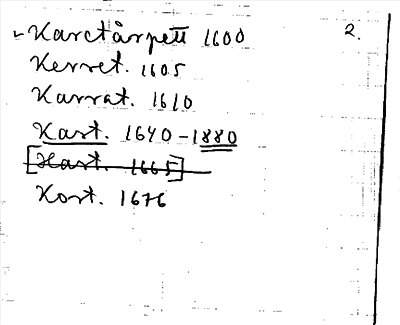 Karctårpett 1600 2.
Kerret. 1605
Karrat. 1610
Kart. 1640-1880
[Kart. 1665]
Kort. 1676